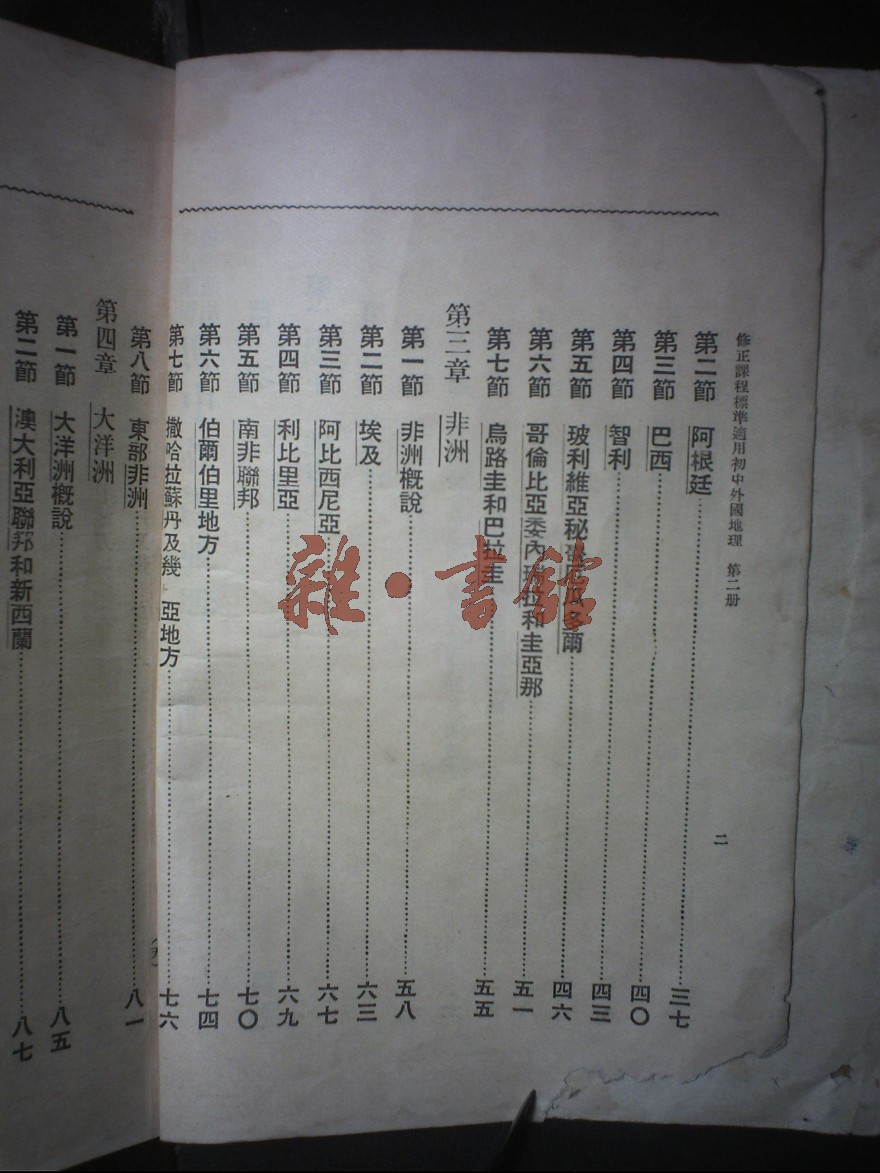 修正課程標準適用初中外國地理　第二册
二
第二節　阿根廷……三七
第三節　巴西……四〇
第四節　智利……四三
第五節　玻利維亞秘　　瓜多爾……四六
第六節　哥倫比亞委內瑞拉和圭亞那……五一
第七節　烏路圭和巴拉圭……五五
第三章　非洲
第一節　非洲概說……五八
第二節　埃及……六三
第三節　阿比西尼亞……六七
第四節　利比里亞……六九
第五節　南非聯邦……七〇
第六節　伯爾伯里地方……七四
第七節　撒哈拉蘇丹及幾　亞地方……七六
第八節　東部非洲……八一
第四章　大洋洲
第一節　大洋洲概說……八五
第二節　澳大利亞聯邦和新西蘭……八七
雜·書館